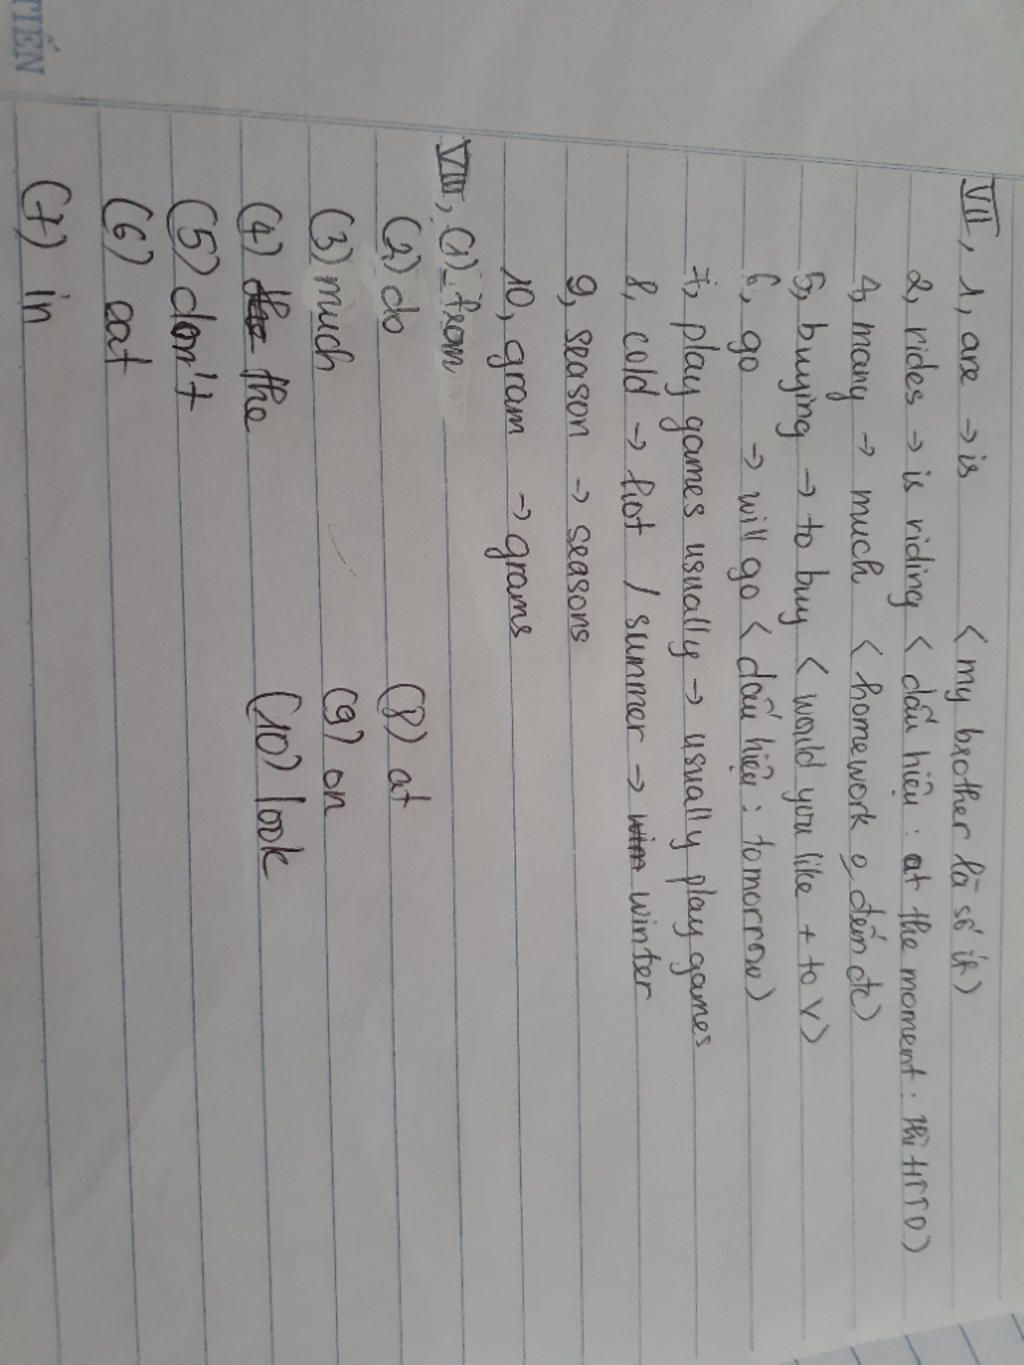 VII, 1, are → is < my brother là số ít)
2, rides → is riding < dấu hiệu : at the moment : thì HTTD)
4, many → much < homework o đếm đc)
5, buying → to buy < world you like + to V)
6, go → will go < dấu hiệu : tomorrow)
7, play games usually → usually play games
8, cold → hot / summer → winter
9, season → seasons
10, gram → grams
VIII, (1) from
(2) do (8) at
(3) much (9) on
(4) the (10) look
(5) don't
(6) eat
(7) in
TIẾN